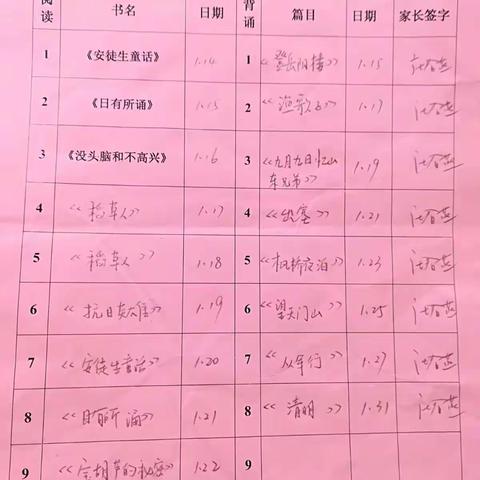 阅读 书名 日期 背诵 篇目 日期 家长签字
1 《安徒生童话》 1.14 1 《登岳阳楼》 1.15
2 《日有所诵》 1.15 2 《渔歌子》 1.17
3 《没头脑和不高兴》 1.16 3 《九月九日忆山
东兄弟》 1.19
4 《稻草人》 1.17 4 《出塞》 1.21
5 《稻草人》 1.18 5 《枫桥夜泊》 1.23
6 《抗日英雄》 1.19 6 《望天门山》 1.25
7 《安徒生童话》 1.20 7 《从军行》 1.27
8 《日有所诵》 1.21 8 《清明》 1.31
9 《宝葫芦的秘密》 1.22 9